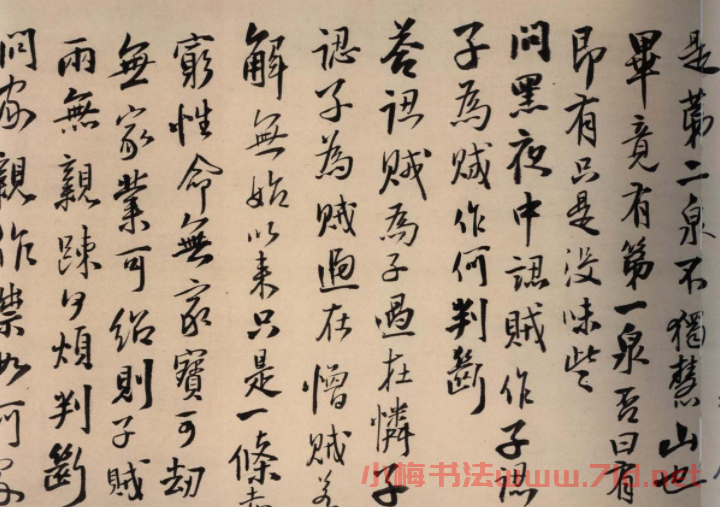 是第二泉不獨慧山也
畢竟有第一泉否曰有
即有只是没味些
問黑夜中認賊作子認
子為賊作何判斷
答認賊為子過在憐子
認子為賊過在憎賊若
解無始以来只是一條
窮性命無家寶可劫
無家業可紹則子賊
兩無親踈何煩判斷
問家親作祟如何
小梅书法www.7id.net